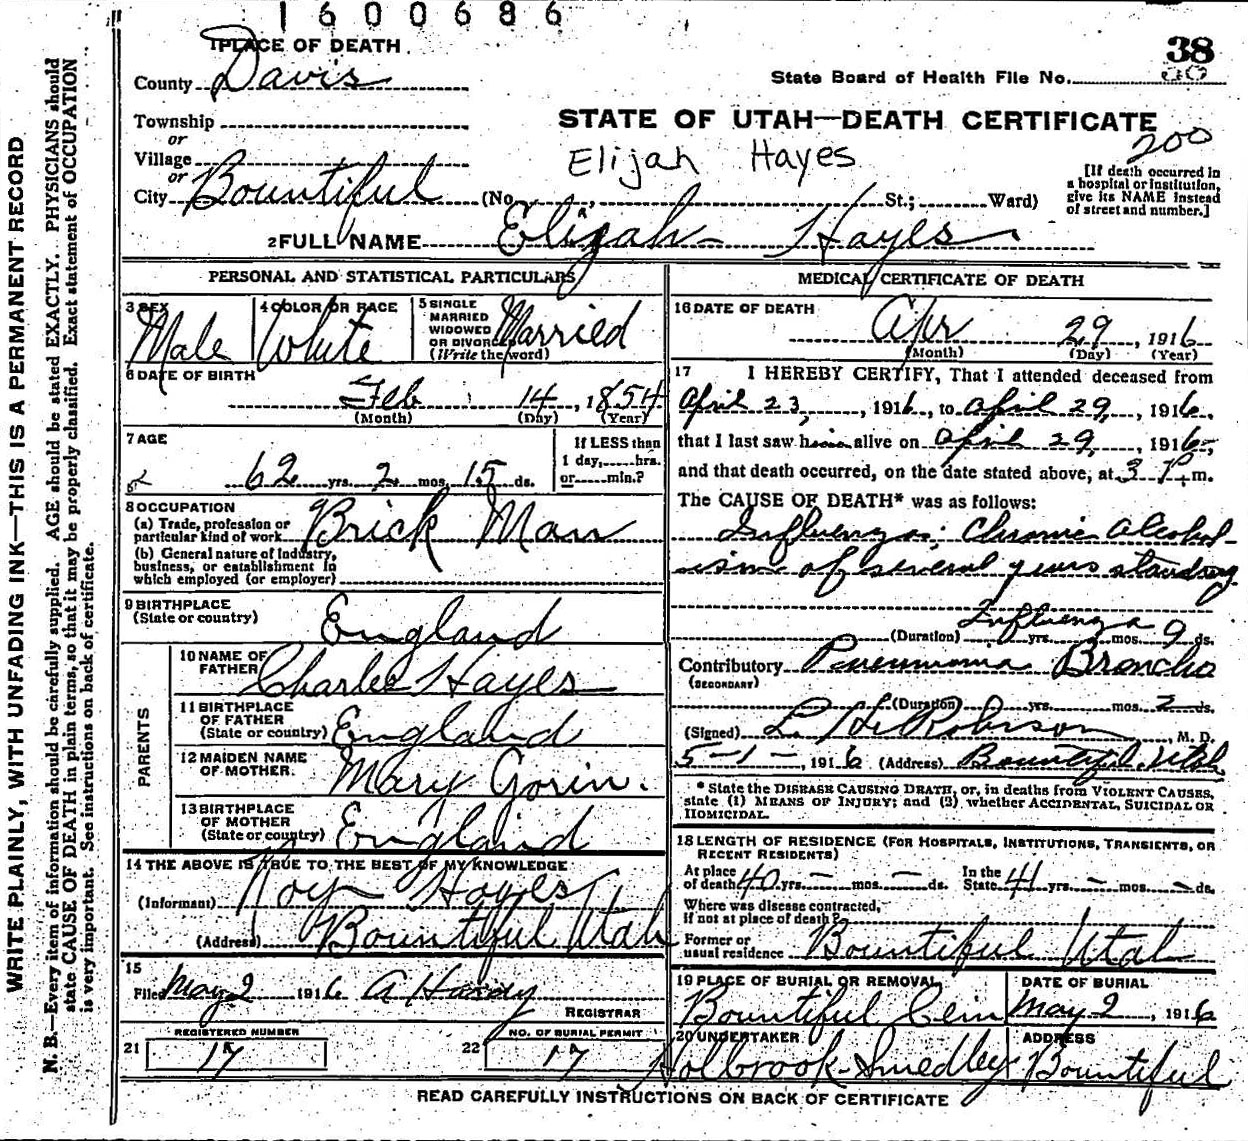 1600686
1 PLACE OF DEATH
38
County Davis
State Board of Health File No.
Township
STATE OF UTAH—DEATH CERTIFICATE
or
200
Village
Elijah Hayes
or
City Bountiful (No. , St.; Ward)
[If death occurred in
a hospital or institution,
give its NAME instead
of street and number.]
2 FULL NAME Elijah Hayes
PERSONAL AND STATISTICAL PARTICULARS
3 SEX
Male
4 COLOR OR RACE
White
5 SINGLE
MARRIED
WIDOWED
OR DIVORCED
(Write the word)
Married
6 DATE OF BIRTH
Feb 14, 1854
(Month) (Day) (Year)
7 AGE
62 yrs. 2 mos. 15 ds.
If LESS than
1 day, hrs.
or min.?
8 OCCUPATION
(a) Trade, profession or
particular kind of work Brick Man
(b) General nature of industry,
business, or establishment in
which employed (or employer)
9 BIRTHPLACE
(State or country) England
PARENTS
10 NAME OF
FATHER Charles Hayes
11 BIRTHPLACE
OF FATHER
(State or country) England
12 MAIDEN NAME
OF MOTHER Mary Gorin.
13 BIRTHPLACE
OF MOTHER
(State or country) England
14 THE ABOVE IS TRUE TO THE BEST OF MY KNOWLEDGE
(Informant) Roy Hayes
(Address) Bountiful Utah
15
Filed May 2 1916 A Hardy
REGISTRAR
REGISTERED NUMBER
21 17
NO. OF BURIAL PERMIT
22 17
MEDICAL CERTIFICATE OF DEATH
16 DATE OF DEATH
Apr 29, 1916
(Month) (Day) (Year)
17 I HEREBY CERTIFY, That I attended deceased from
April 23, 1916, to April 29, 1916,
that I last saw him alive on April 29, 1916,
and that death occurred, on the date stated above, at 3 P.m.
The CAUSE OF DEATH* was as follows:
Influenza; Chronic Alcohol-
ism of several years standing
Influenza
(Duration) yrs. mos. 9 ds.
Contributory Pneumonia Broncho
(SECONDARY)
(Duration) yrs. mos. 2 ds.
(Signed) L. H. Robinson, M. D.
5-1-, 1916 (Address) Bountiful, Utah
* State the DISEASE CAUSING DEATH, or, in deaths from VIOLENT CAUSES,
state (1) MEANS OF INJURY; and (2) whether ACCIDENTAL, SUICIDAL OR
HOMICIDAL.
18 LENGTH OF RESIDENCE (FOR HOSPITALS, INSTITUTIONS, TRANSIENTS, OR
RECENT RESIDENTS)
At place
of death 40 yrs. – mos. – ds.
In the
State 41 yrs. – mos. – ds.
Where was disease contracted,
if not at place of death?
Former or
usual residence Bountiful Utah
19 PLACE OF BURIAL OR REMOVAL
Bountiful Cem
DATE OF BURIAL
May 2, 1916
20 UNDERTAKER
Holbrook-Smedley
ADDRESS
Bountiful
READ CAREFULLY INSTRUCTIONS ON BACK OF CERTIFICATE
WRITE PLAINLY, WITH UNFADING INK—THIS IS A PERMANENT RECORD
N. B.—Every item of information should be carefully supplied. AGE should be stated EXACTLY. PHYSICIANS should
state CAUSE OF DEATH in plain terms, so that it may be properly classified. Exact statement of OCCUPATION
is very important. See instructions on back of certificate.